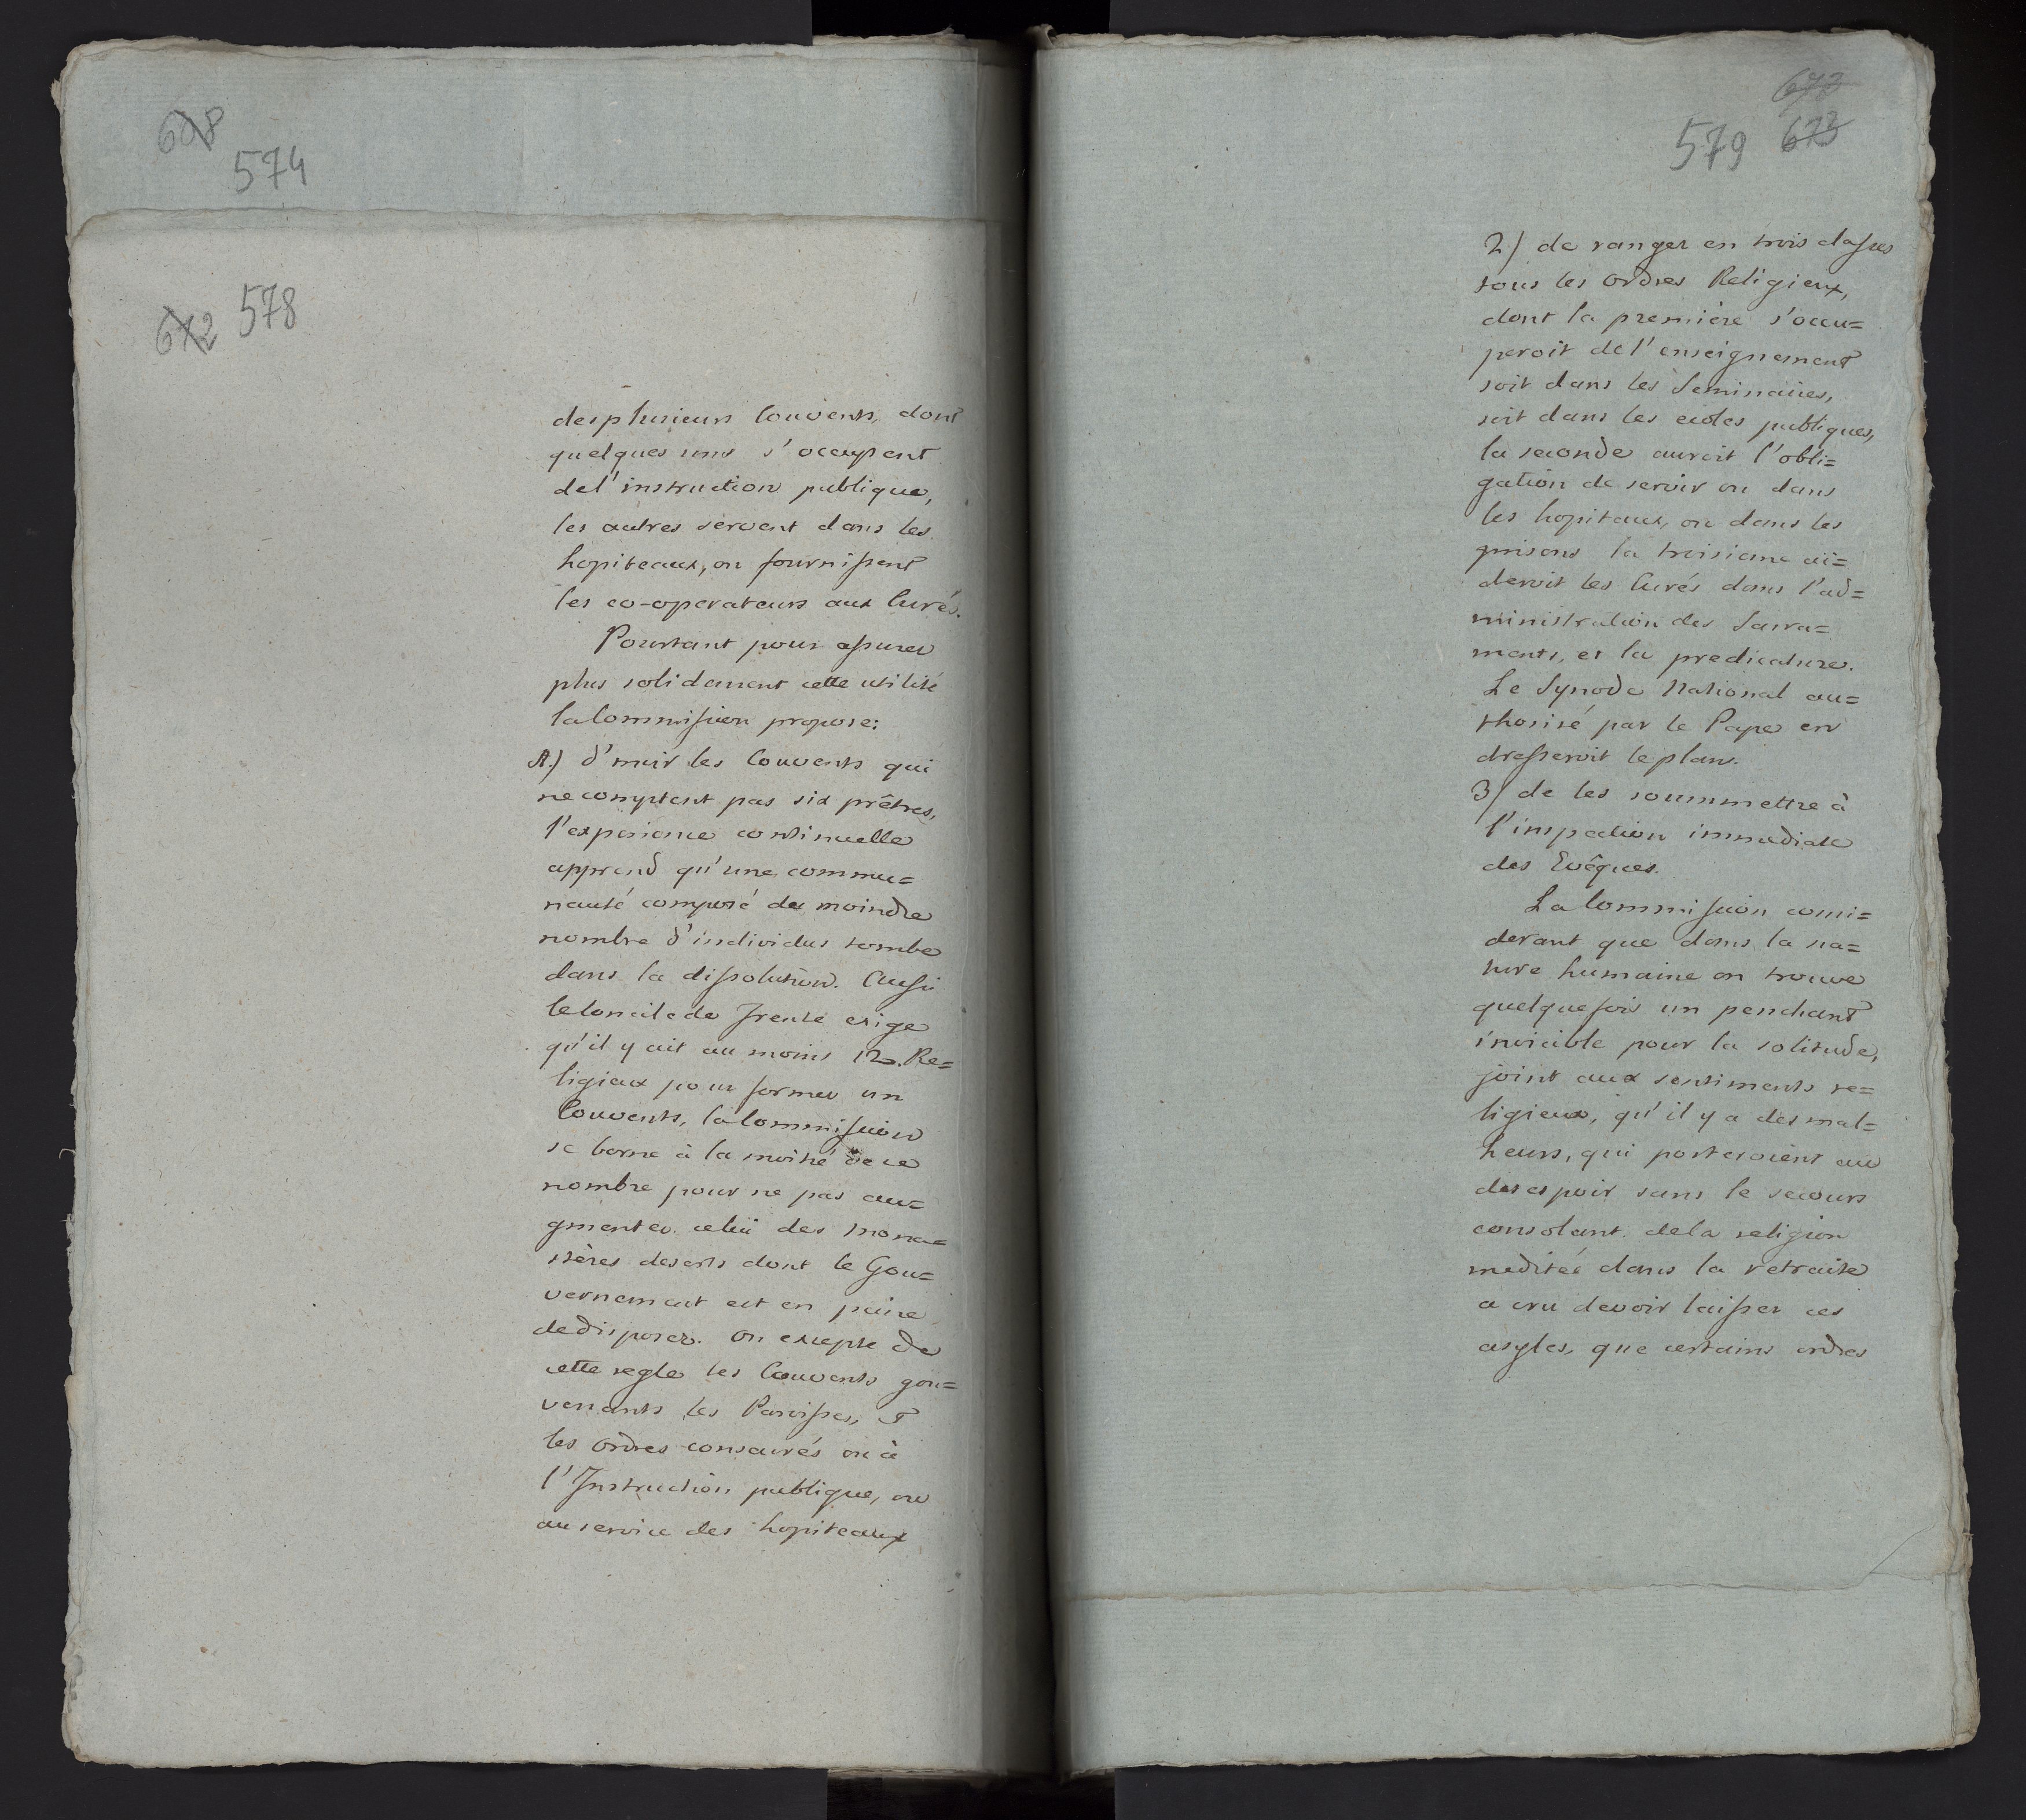 608
574
672 578
desplusieurs Couvents, dont
quelques uns s'occupent
del'instruction publique,
les autres servent dans les
hopiteaux, ou fournissent
les co-operateurs aux Curés.
Pourtant pour assurer
plus solidement cette utilité
la Commission propose:
A.) d'unir les Couvents qui
ne comptent pas six prêtres,
l'experience continuelle
apprend qu'une commu=
nauté composé de moindre
nombre d'individus tombe
dans la dissolution. Aussi
le Concile de Trente exige
qu'il y ait au moins 12. Re=
ligieux pour former un
Couvents, la Commission
se borne à la moitié de ce
nombre pour ne pas au=
gmenter celui des mona=
stères deserts dont le Gou=
vernement est en peine
de disposer. On excepte de
cette regle les Couvents gou=
vernants les Paroisses, et
les Ordres consacrés ou à
l'Instruction publique, ou
au service des hopiteaux
673
579 673
2) de ranger en trois classes
tous les Ordres Religieux,
dont la première s'occu=
peroit de l'enseignement
soit dans les Seminaires,
soit dans les ecoles publiques,
la seconde auroit l'obli=
gation de servir ou dans
les hopitaux, ou dans les
prisons la troisieme ai=
deroit les Curés dans l'ad=
ministration des Sacra=
ments, et la predicature.
Le Synode National au=
thorisé par le Pape en
dresseroit le plan.
3) de les soummettre à
l'inspection immediate
des Evêques.
La Commission consi=
derant que dans la na=
ture humaine on trouve
quelquefois un penchant
invicible pour la solitude,
joint aux sentiments re=
ligieux, qu'il y a des mal=
heurs, qui porteroient au
desespoir sans le secours
consolant de la religion
meditée dans la retraite
a cru devoir laisser ces
asyles, que certains ordres